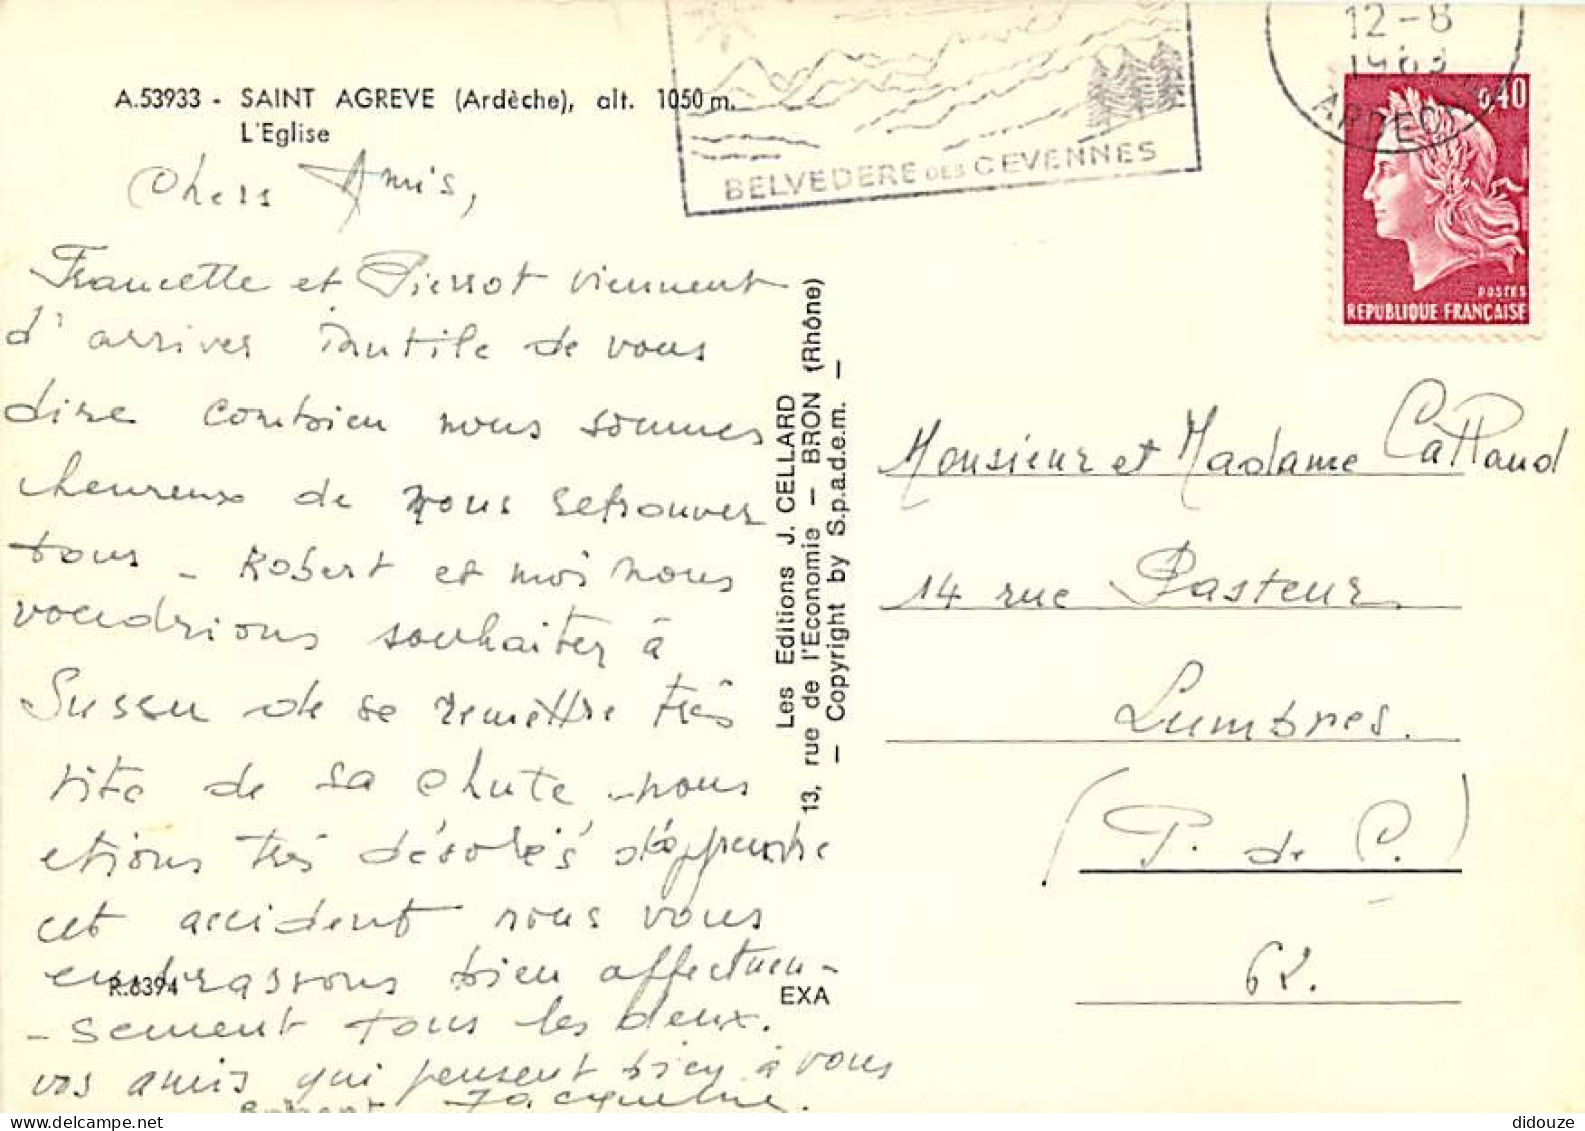 A.53933 - SAINT AGREVE (Ardèche), alt. 1050 m.
L'Eglise
BELVEDERE DES CEVENNES
12-8
1969
ARDECHE
0,40
POSTES
REPUBLIQUE FRANÇAISE
Chers Amis,
Francette et Pierrot viennent
d'arriver inutile de vous
dire combien nous sommes
heureux de nous retrouver
tous - Robert et moi nous
voudrions souhaiter à
Sussu de se remettre très
vite de sa chute nous
etions très désolés d'apprendre
cet accident nous vous
embrassons bien affectueu-
-sement tous les deux.
vos amis qui pensent bien à vous
Robert Jacqueline.
R.6394
EXA
Les Editions J. CELLARD
13, rue de l'Economie — BRON (Rhône)
— Copyright by S.p.a.d.e.m. —
Monsieur et Madame Calland
14 rue Pasteur
Lumbres.
(P. de C.)
62.
didouze